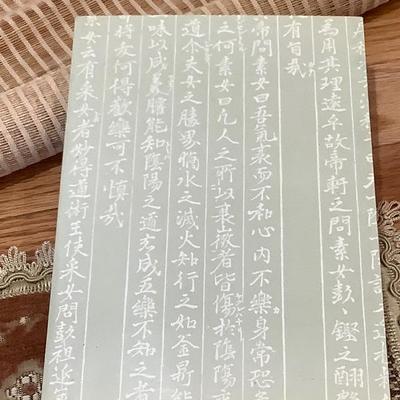 曰夫一陰一陽謂之道
為用其理遠乎故帝軒之問素女彭〻鏗之酬殷
有旨哉
帝問素女曰吾氣衰而不和心內不樂身常恐危
之何素女曰凡人之所以衰微者皆傷於陰陽交
道尒夫女之勝男猶水之滅火知行之如釜鼎能
味以成羹臛能知陰陽之道悉成五樂不知之者
將夭何得歡樂可不慎哉
素女云有采女者妙得道術王使采女問彭祖延年